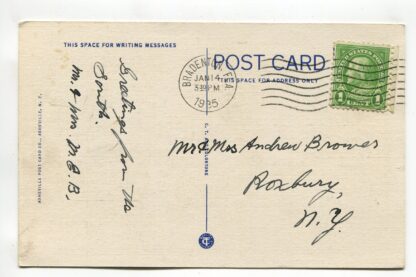 THIS SPACE FOR WRITING MESSAGES
POST CARD
THIS SPACE FOR ADDRESS ONLY
BRADENTON, FLA.
JAN 14
PM
1935
UNITED STATES POSTAGE
1 1
Greetings from the
South.
Mr. & Mrs. M. E. B.
ASHEVILLE POST CARD CO., ASHEVILLE, N. C.
Mr & Mrs Andrew Brower
Roxbury,
N.Y.